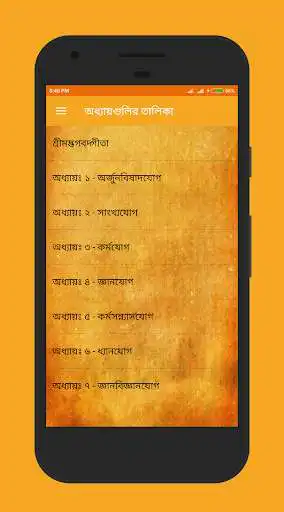 5:40 PM
86%
অধ্যায়গুলির তালিকা
শ্রীমদ্ভগবদ্গীতা
অধ্যায়ঃ ১ - অর্জুনবিষাদযোগ
অধ্যায়ঃ ২ - সাংখ্যযোগ
অধ্যায়ঃ ৩ - কর্মযোগ
অধ্যায়ঃ ৪ - জ্ঞানযোগ
অধ্যায়ঃ ৫ - কর্মসন্ন্যাসযোগ
অধ্যায়ঃ ৬ - ধ্যানযোগ
অধ্যায়ঃ ৭ - জ্ঞানবিজ্ঞানযোগ